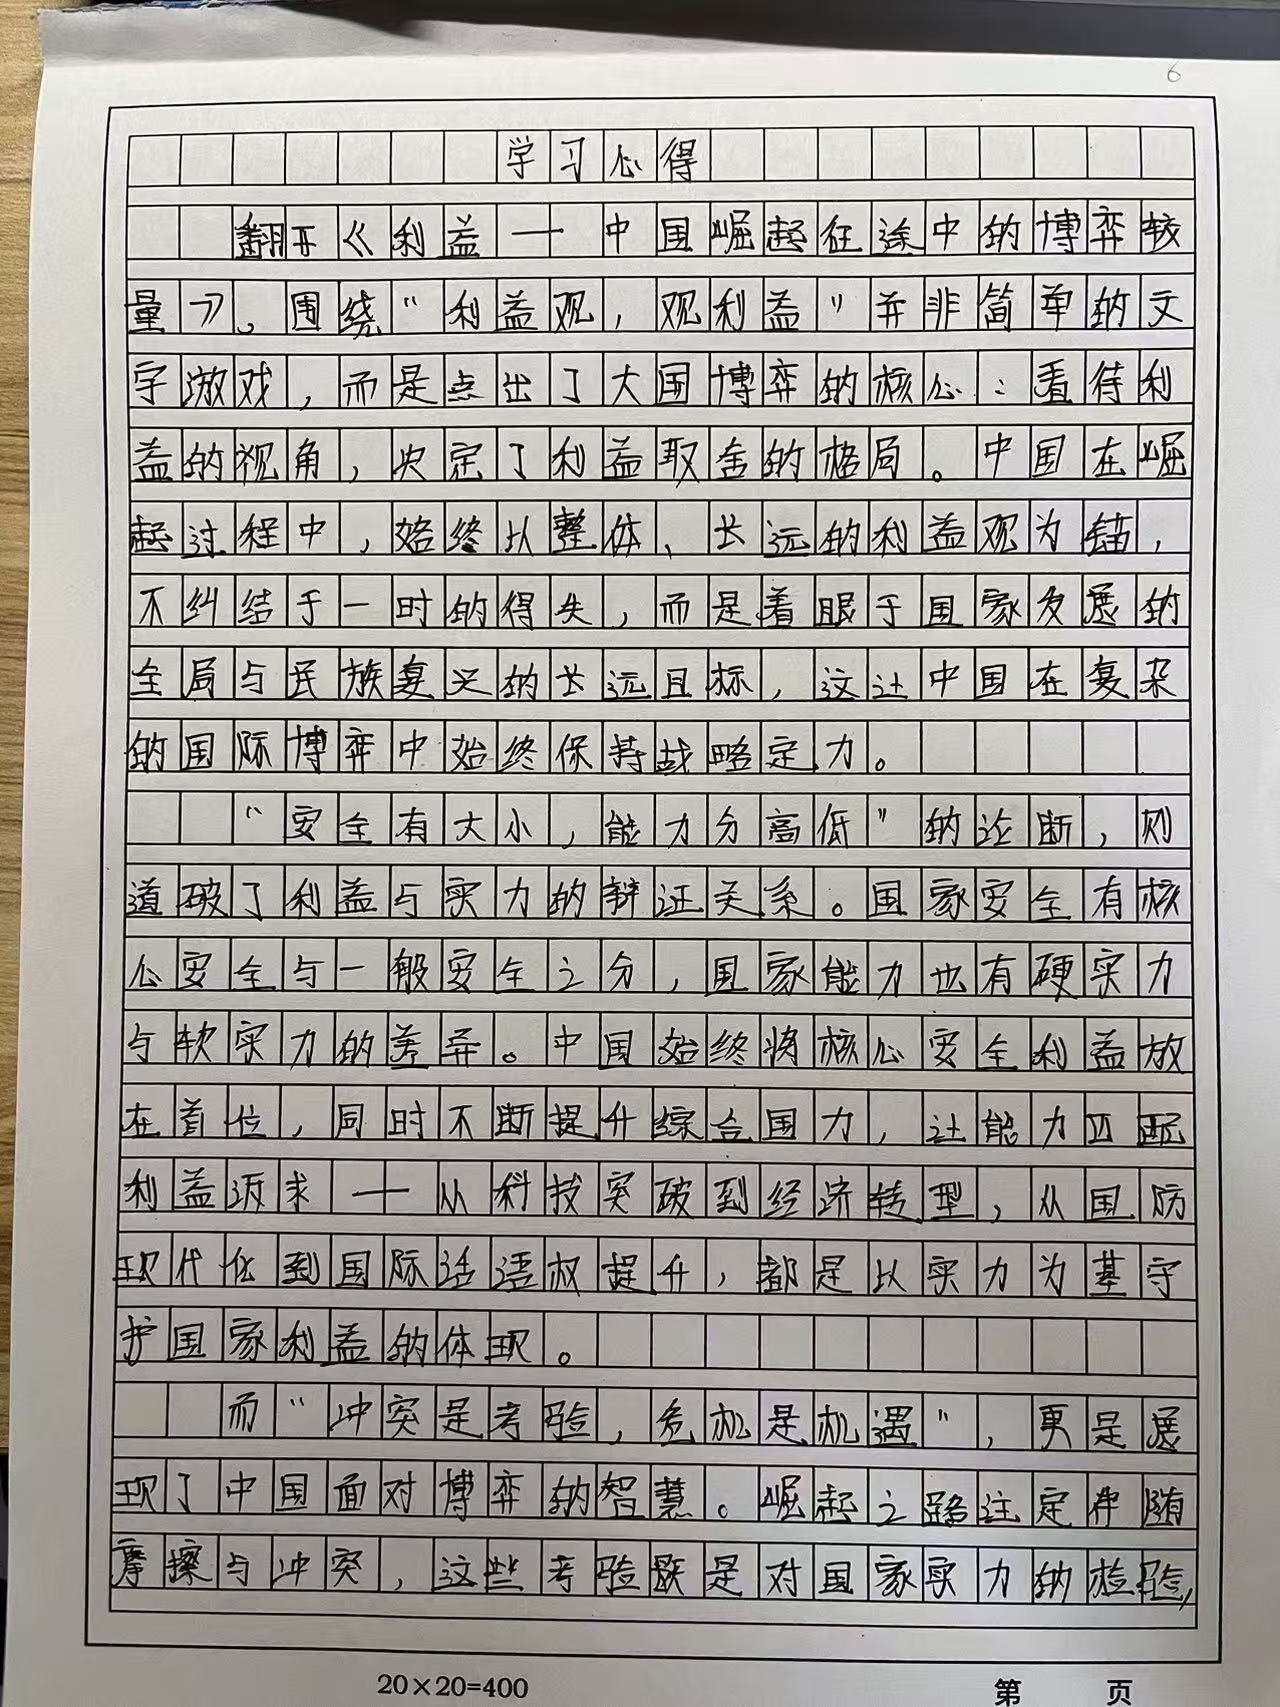 6
学习心得
翻开《利益——中国崛起征途中的博弈较
量》。围绕“利益观，观利益”并非简单的文
字游戏，而是点出了大国博弈的核心：看待利
益的视角，决定了利益取舍的格局。中国在崛
起过程中，始终以整体、长远的利益观为锚，
不纠结于一时的得失，而是着眼于国家发展的
全局与民族复兴的长远目标，这让中国在复杂
的国际博弈中始终保持战略定力。
“安全有大小，能力分高低”的论断，则
道破了利益与实力的辩证关系。国家安全有核
心安全与一般安全之分，国家能力也有硬实力
与软实力的差异。中国始终将核心安全利益放
在首位，同时不断提升综合国力，让能力匹配
利益诉求——从科技突破到经济转型，从国防
现代化到国际话语权提升，都是以实力为基守
护国家利益的体现。
而“冲突是考验，危机是机遇”，更是展
现了中国面对博弈的智慧。崛起之路注定伴随
摩擦与冲突，这些考验既是对国家实力的检验，
20×20=400
第 页